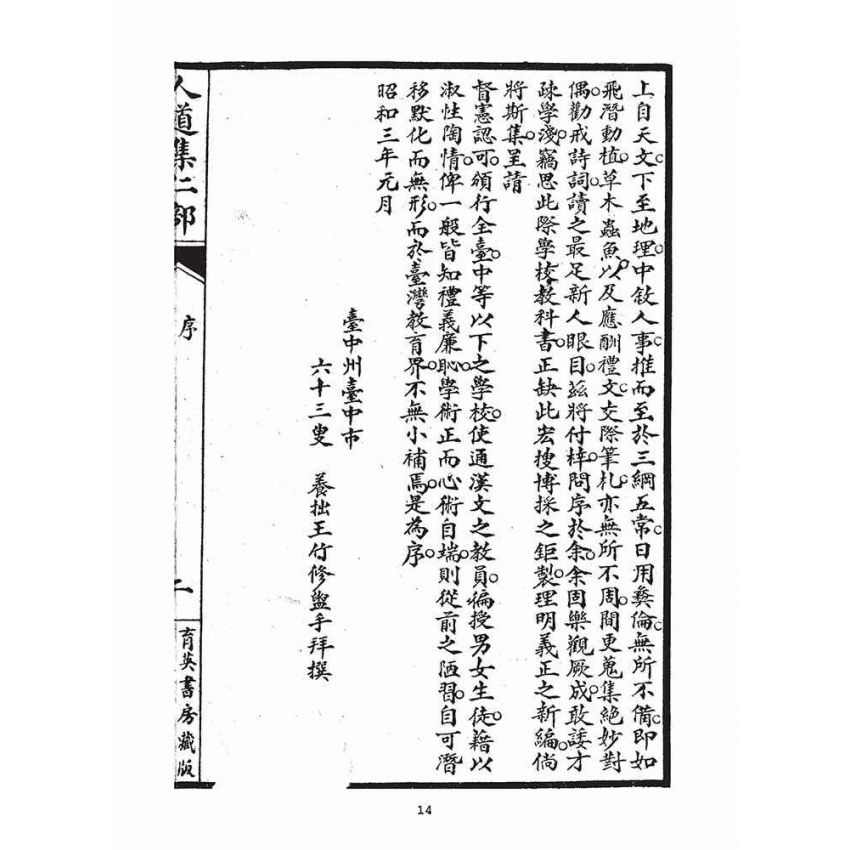 上自天文。下至地理。中敘人事。推而至於三綱五常。日用彝倫。無所不備。即如
飛潛動植。草木蟲魚。以及應酬禮文。交際筆札。亦無所不周。間更蒐集絕妙對
偶。勸戒詩詞。讀之最足新人眼目。茲將付梓。問序於余。余固樂觀厥成。敢諉才
疎學淺。竊思此際學校教科書。正缺此宏搜博採之鉅製。理明義正之新編。倘
將斯集。呈請
督憲認可。頒行全臺中等以下之學校。使通漢文之教員。徧授男女生徒。藉以
淑性陶情。俾一般皆知禮義廉恥。學術正而心術自端。則從前之陋習。自可潛
移默化而無形。而於臺灣教育界。不無小補焉。是為序。
昭和三年元月
臺中州臺中市
六十三叟　養拙王竹修盥手拜撰
人道集仁部
序
二
育英書房藏版
14